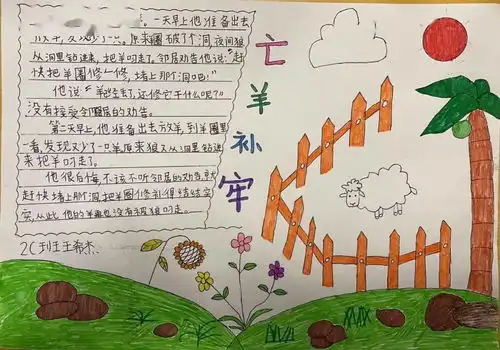 。一天早上他准备出去
少了一只。原来圈破了个洞,夜间狼
从洞里钻进来,把羊叼走了。邻居劝告他说:“赶
快把羊圈修一修,堵上那个洞吧!”
他说:“羊已经丢了,还修它干什么呢?”
没有接受邻居的劝告。
第二天早上,他准备出去放羊,到羊圈里
一看,发现又少了一只羊。原来狼又从洞里钻进
来把羊叼走了。
他很后悔,不该不听邻居的劝告,就
赶快堵上那个洞,把羊圈修补得结结实
实,从此,他的羊再也没有被狼叼走。
2C班王希杰
亡
羊
补
牢